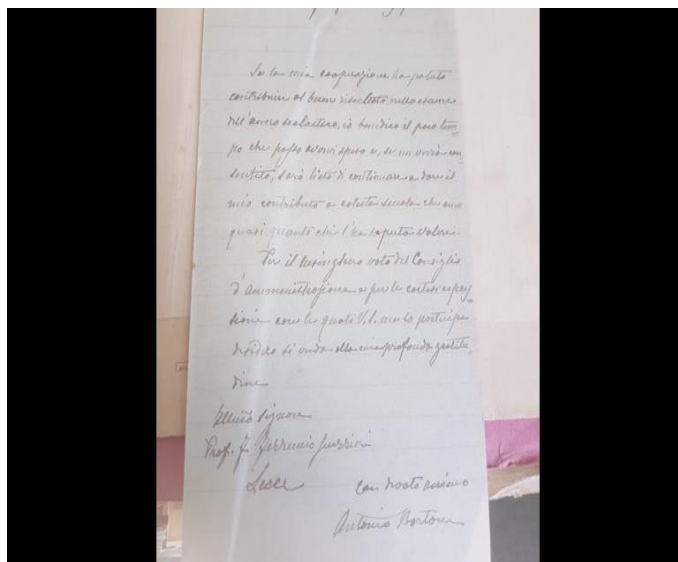 Se la mia cooperazione ha potuto
contribuire al buon risultato nello esame
dell'anno scolastico, io benedico il poco tem-
po che posso avervi speso e, se mi verrà con-
sentito, sarò lieto di continuare a dare il
mio contributo a cotesta scuola che amo
quasi quanto chi l'ha saputa volere.
Per il lusinghiero voto del Consiglio
d'amministrazione e per le cortesi espres-
sioni con le quali V. S. me lo partecipa
desidero si renda alla mia profonda gratitu-
dine
Illmo Signore
Prof. J. Ferruccio Guerrini
Lecce
con devoto animo
Antonio Bortone